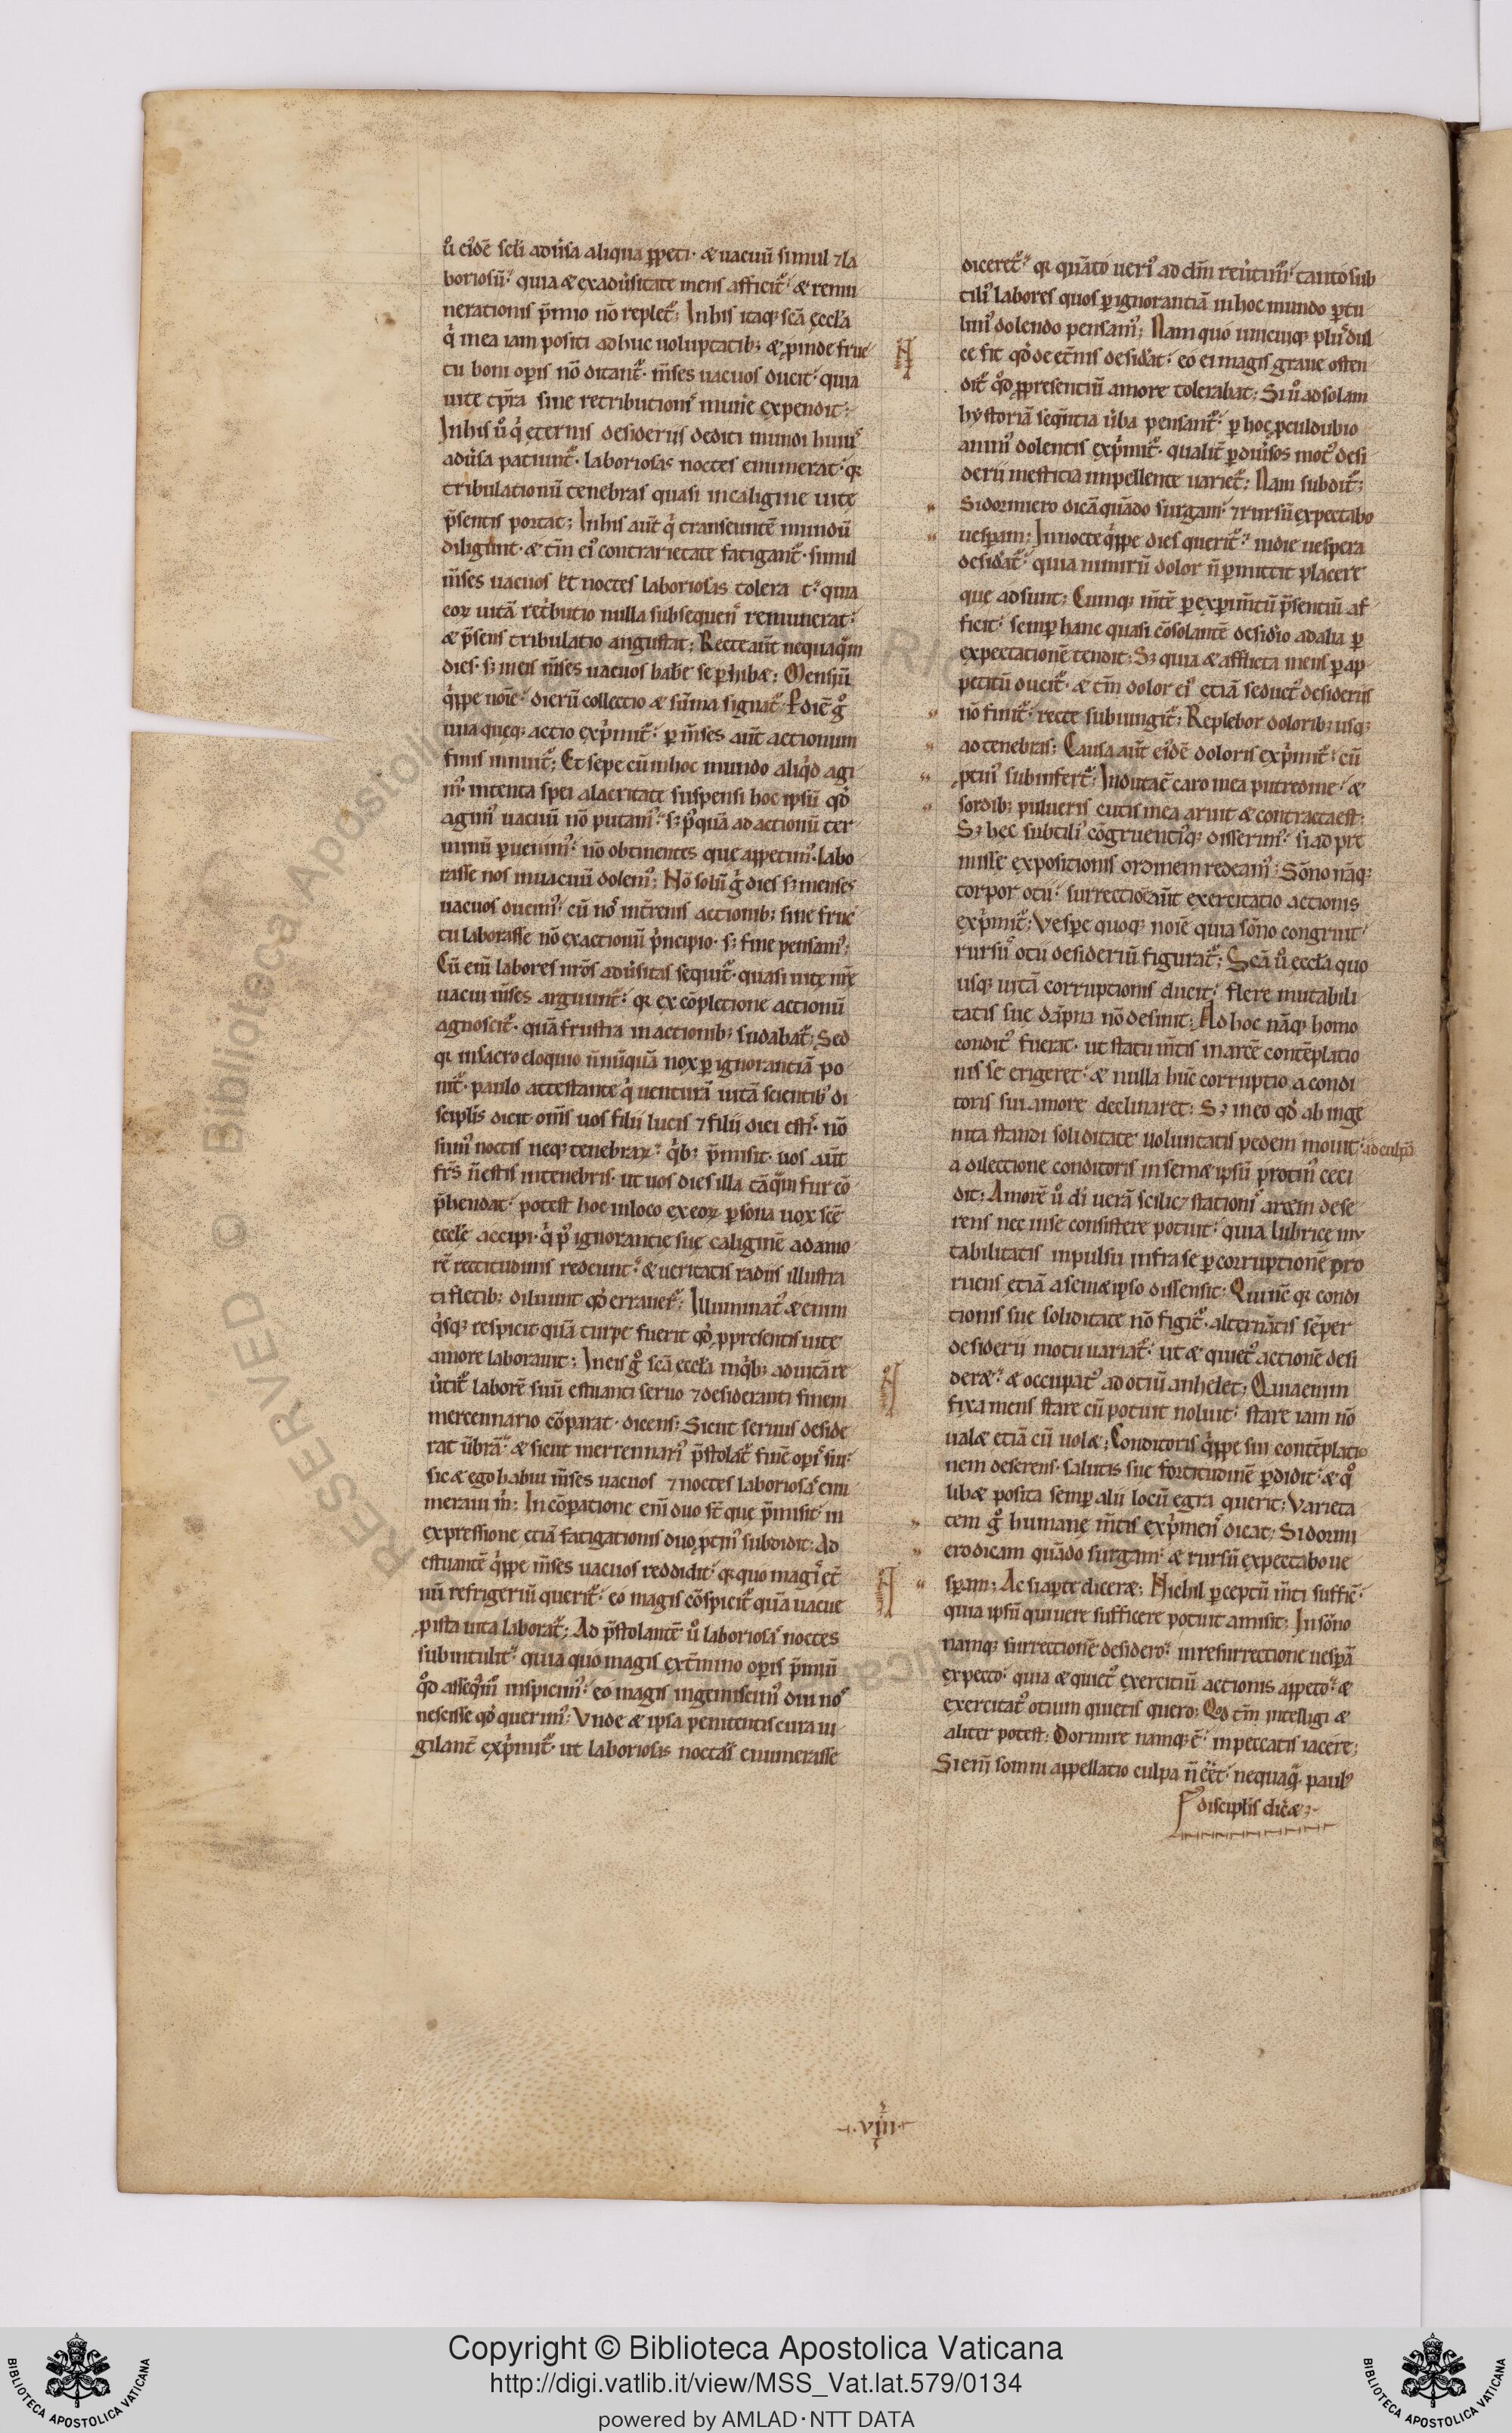 ů eiđē scłi aduͥsa aliqua ꝑpeti· & uacuū simul ⁊la
boriosū· quia & ex aduͥsitate mens afficit̃· & remu
nerationis p̄mio nō replet̃; In his itaq; scā eccła
qͥ mea iam positi ad huc uoluptatib; & ꝓinde fruc
tu boni oꝑis nō ditant̃· m̄ses uacuos ducit· quia
uite tp̄ra sine retributionis munͥe expendit;
In his ů qͥ ęternis desideriis dediti mundi huiꝰ
aduͥsa patiunt̃· laboriosas noctes enumerat· qꝛ
tribulationū tenebras quasi in caligine uitę
p̄sentis portat; In his aūt qͥ transeuntē mundū
diligunt· & tm̄ eiꝰ contrarietate fatigant̃· simul
m̄ses uacuos et noctes laboriosas tolera t· quia
eoꝝ uitā ret̍butio nulla subsequens remunerat·
& p̄sens tribulatio angustat; Recte aūt nequaqͣm
dies· s; mens m̄ses uacuos habͤe se ꝑhibæ; Mensiū
qͥppe noīe· dierū collectio & sūma signat̃· ꝑ diē g̊
una queq; actio exp̍mit̃· ꝑ m̄ses aūt actionum
finis innuit̃; Et sepe cū in hoc mundo aliqͥd agi
mꝰ· intenta spei alacritate suspensi hoc ipsū qđ
agimꝰ uacuū nō putamꝰ· s; pꝰquā ad actionū ter
minū ꝑuenimꝰ· nō obtinentes que appetimꝰ· labo
rasse nos in uacuū dolemꝰ; Nō solū g̊ dies s; menses
uacuos ducimꝰ· cū nos in t̃renis actionib; sine fruc
tu laborasse nō ex actionū p̍ncipio· s; fine pensamꝰ;
Cū enī labores nr̄os aduͥsitas sequit̃· quasi uitę nr̄ę
uacui m̄ses arguunt̃· qꝛ ex cōpletione actionū
agnoscit̃· quā frustra in actionib; sudabat̃; Sed
qꝛ in sacro eloquio ñ nūquā nox ꝑ ignorantiā po
nit̃· paulo attestante qͥ uenturā uitā scientibꝰ di
scipłis dicit· om̄s uos filii lucis ⁊ filii diei estis· nō
sumꝰ noctis neq; tenebraꝝ· qͥb; p̄misit· uos aūt
fr̄s ñ estis in tenebris· ut uos dies illa tāqͣm fur cō
p̄hendat· potest hoc in loco ex eoꝝ ꝑsona uox scē
ecclę accipi· qͥ pꝰ ignorantie sue caliginē ad amo
rē rectitudinis redeunt· & ueritatis radiis illustra
ti fletib; diluunt qđ erraueř; Illuminatꝰ & enim
qͥsq; respicit· quā turpe fuerit qđ ꝓ presentis uite
amore laborauit; In eis g̊ scā eccła in qͥb; ad uitā re
uͥtit̃ laborē suū estuanti seruo ⁊ desideranti finem
mercennario cōparat· dicens; Sicut seruus deside
rat ūbrā· & sicut mercennariꝰ p̄stolat̃ finē opͥs sui·
sic & ego habui m̄ses uacuos ⁊ noctes laboriosas enu
meraui m̍; In cōparatione enī duo st̄ que p̄misit· in
expressione etiā fatigationis duo ꝓtinꝰ subdidit; Ad
estuantē qͥppe m̄ses uacuos reddidit· qꝛ quo magͥs et̃
nū refrigeriū querit̃· eo magis cōspicit̃ quā uacue
ꝓ ista uita laborat̃; Ad p̄stolantē ů laboriosas noctes
subintulit· quia quo magis ext̃mino oꝑis p̄miū
qđ asseqͣmꝰ inspicimꝰ· eo magis ingemiscimꝰ diu nos
nescisse qđ querimꝰ; Vnde & ipsa penitentis cura ui
gilant̃ exp̍mit̃· ut laboriosas noctes enumerasse
diceret̃· qꝛ quāto uerͥꝰ ad dm̄ reuͥtimꝰ· tanto sub
tiliꝰ labores quos ꝑ ignorantiā in hoc mundo ꝑtu
limꝰ dolendo pensamꝰ; Nam quo unicuiq; plus dul
ce fit qđ de et̃nis desidͤat· eo ei magis graue osten
dit̃ qđ ꝓ presentiū amore tolerabat; Si ů ad solam
hystoriā seqͣntia uͥba pensant̃· ꝑ hoc ꝓculdubio
animꝰ dolentis exp̍mit̃· qualit̃ ꝑ diuͥsos motꝰ desi
derii mesticia impellente uariet̃; Nam subdit̃;
Si dormiero dicā quādo surgam· ⁊ rursū expectabo
uesꝑam; In nocte qͥppe dies querit̃· in die uespera
desidͤat̃· quia nimirū dolor ñ ꝑmittit placere
que adsunt; Cumq; m̄tē ꝑ expim̄tū p̄sentiū af
ficit· semꝑ hanc quasi cōsolantē desidͤio ad alia ꝑ
expectationē tendit; S; quia & afflicta mens ꝑ ap
petitū ducit̃· & tm̄ dolor eiꝰ etiā seductꝰ desideriis
nō finit̃· recte subiungit̃; Replebor dolorib; usq;
ad tenebras; Causa aūt eiđē doloris exp̍mit̃· cū
ꝓtinꝰ subinfert̃; Induta ē caro mea putredine· &
sordib; pulueris cutis mea aruit & contracta est;
S; hec subtiliꝰ cōgruentiꝰq; disserimꝰ· si ad pre
misse expositionis ordinem redeamꝰ; Sōno nāq;
torpor otii· surrectione aūt exercitatio actionis
exp̍mit̃; Vespe quoq; noīe quia sōno congruit·
rursū otii desideriū figurat̃; Scā ů eccła quo
usq; uitā corruptionis ducit· flere mutabili
tatis sue dāpna nō desinit; Ad hoc nāq; homo
conditꝰ fuerat· ut statu m̄tis in arcē contēplatio
nis se erigeret· & nulla hūc corruptio a condi
toris sui amore declinaret; S; in eo qđ ab inge
nita standi soliditate uoluntatis pedem mouit· ad culpā
a dilectione conditoris in semæipsū protinꝰ ceci
dit; Amorē ů dī uerā scilic; stationis arcem dese
rens nec in se consistere potuit· quia lubrice mu
tabilitatis inpulsu infra se ꝑ corruptionē pro
ruens etiā a semæipso dissensit; Qui nē qꝛ condi
tionis sue soliditate nō figit̃· alternātis semper
desiderii motu uariat̃· ut & quietꝰ actionē desi
deræ· & occupatꝰ ad otiū anhelet; Quia enim
fixa mens stare cū potuit noluit· stare iam nō
ualæ etiā cū uolæ; Conditoris qͥppe sui contēplatio
nem deserens· salutis sue fortitudinē ꝑdidit· & qͦ
libæ posita semꝑ alii locū egra querit; Varieta
tem g̊ humane m̄tis exp̍mens dicat; Si dormi
ero dicam quādo surgam· & rursū expectabo ue
sꝑam; Ac si aꝑte diceræ; Nichil ꝑceptū m̄ti sufficͥ·
quia ipsū qui uere sufficere potuit amisit; In sōno
namq; surrectionē desidero· in resurrectione uesꝑā
expecto· quia & quietꝰ exercitiū actionis appeto· &
exercitatꝰ otium quietis quero; Qđ tm̄ intelligi &
aliter potest; Dormire namq; ē· in peccatis iacere;
Si enī somni appellatio culpa ñ eēt· nequaqͣ· paulꝰ
discipłis dicͤæ;
·viii·
Copyright © Biblioteca Apostolica Vaticana
http://digi.vatlib.it/view/MSS_Vat.lat.579/0134
powered by AMLAD·NTT DATA
BIBLIOTECA APOSTOLICA VATICANA
BIBLIOTECA APOSTOLICA VATICANA